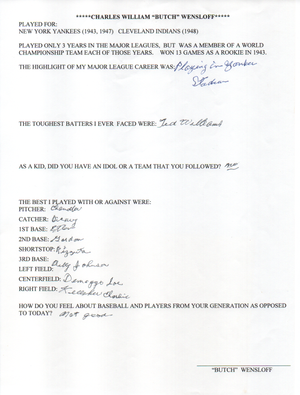 *****CHARLES WILLIAM "BUTCH" WENSLOFF*****
PLAYED FOR:
NEW YORK YANKEES (1943, 1947) CLEVELAND INDIANS (1948)
PLAYED ONLY 3 YEARS IN THE MAJOR LEAGUES, BUT WAS A MEMBER OF A WORLD
CHAMPIONSHIP TEAM EACH OF THOSE YEARS. WON 13 GAMES AS A ROOKIE IN 1943.
THE HIGHLIGHT OF MY MAJOR LEAGUE CAREER WAS: Playing in Yankee
Stadium
THE TOUGHEST BATTERS I EVER FACED WERE: Ted Williams
AS A KID, DID YOU HAVE AN IDOL OR A TEAM THAT YOU FOLLOWED? no
THE BEST I PLAYED WITH OR AGAINST WERE:
PITCHER: Chandler
CATCHER: Dickey
1ST BASE: Etten
2ND BASE: Gordon
SHORTSTOP:
3RD BASE: Billy Johnson
LEFT FIELD:
CENTERFIELD: Joe
RIGHT FIELD: Charlie
HOW DO YOU FEEL ABOUT BASEBALL AND PLAYERS FROM YOUR GENERATION AS OPPOSED
TO TODAY? Not good
"BUTCH" WENSLOFF